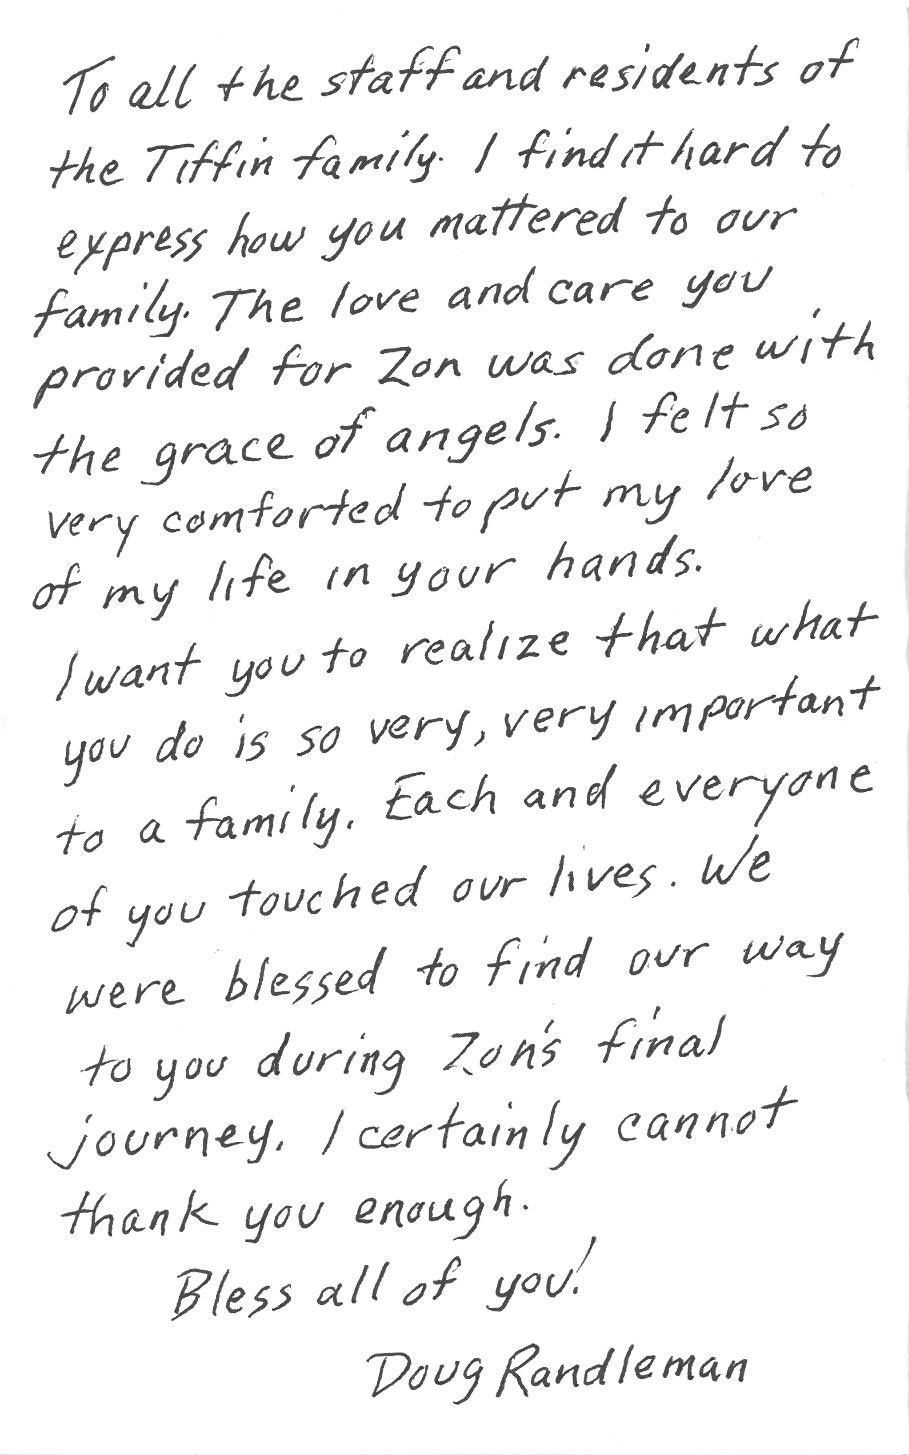 To all the staff and residents of
the Tiffin family. I find it hard to
express how you mattered to our
family. The love and care you
provided for Zon was done with
the grace of angels. I felt so
very comforted to put my love
of my life in your hands.
I want you to realize that what
you do is so very, very important
to a family. Each and everyone
of you touched our lives. We
were blessed to find our way
to you during Zon's final
journey. I certainly cannot
thank you enough.
Bless all of you!
Doug Randleman